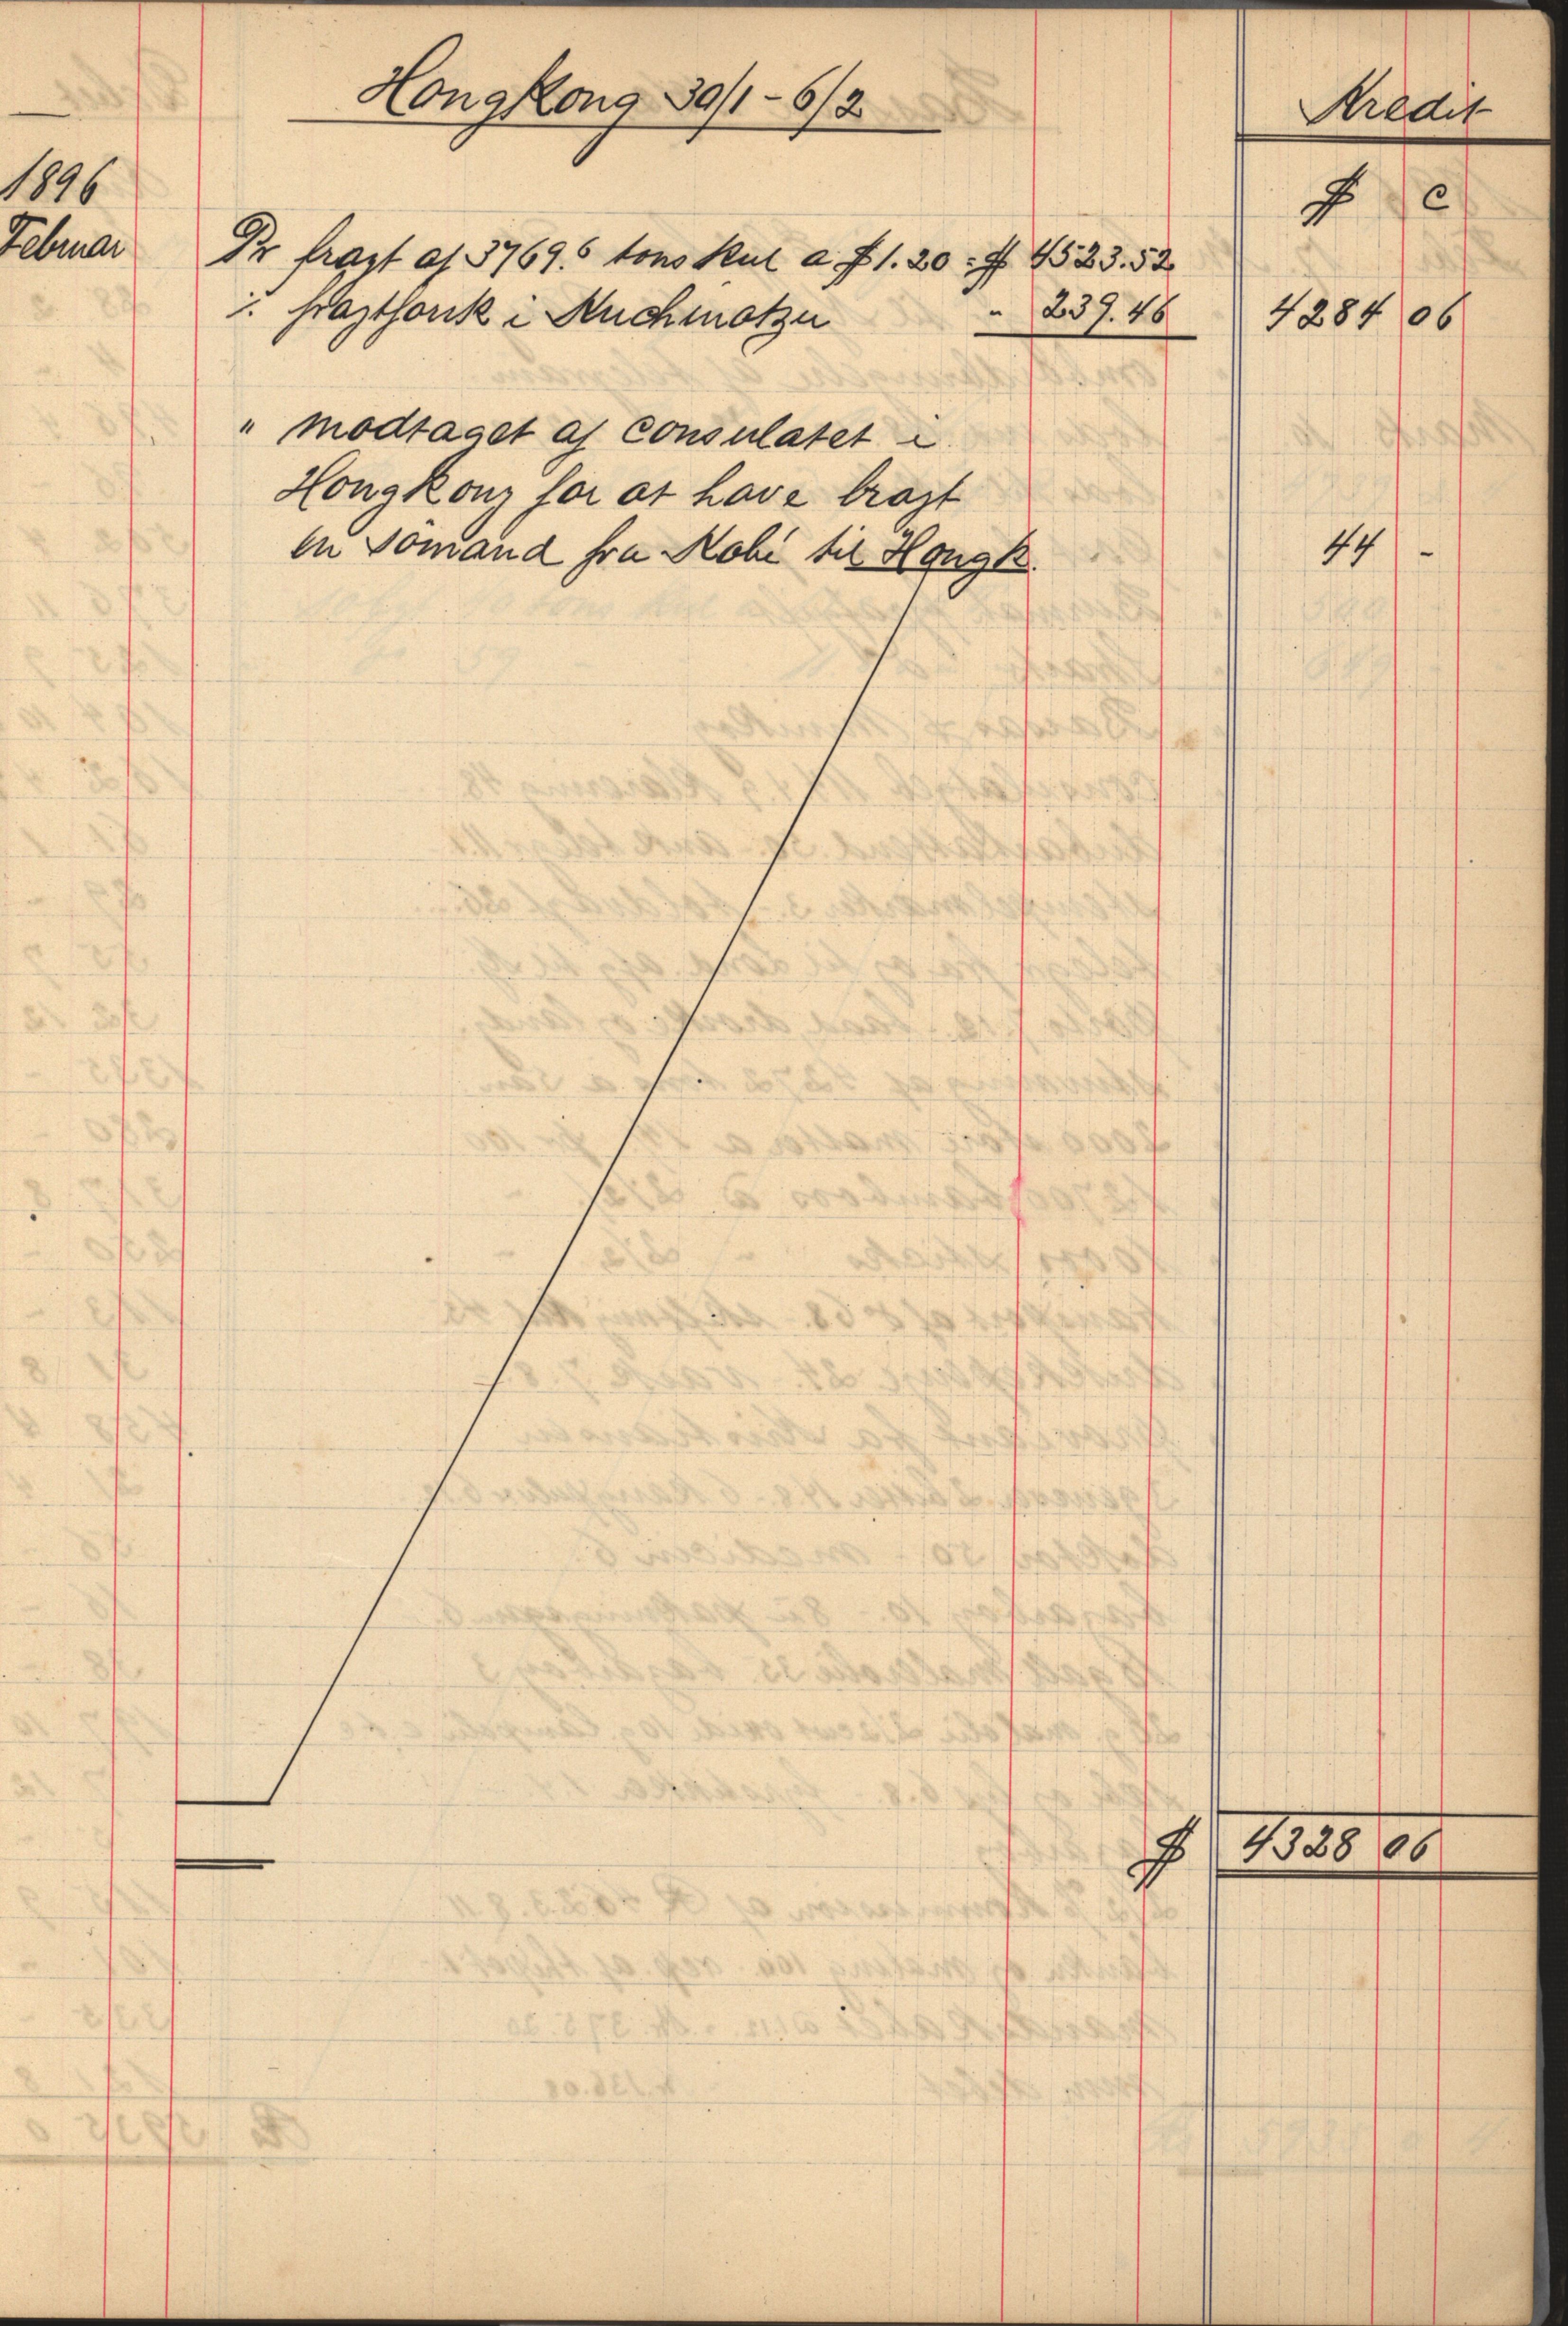 HongKong 30/1 - 6/2
Kredit
1896
$ c
Februar Pr fragt af 3769.6 tons kul a $ 1.20 = $ 4523.52
÷ fragtforsk i Kuchinotzu " 239.46 4284 06
" modtaget af consulatet i
Hongkong for at have bragt
en sömand fra Kobe til Hongk. 44 -
$ 4328 06